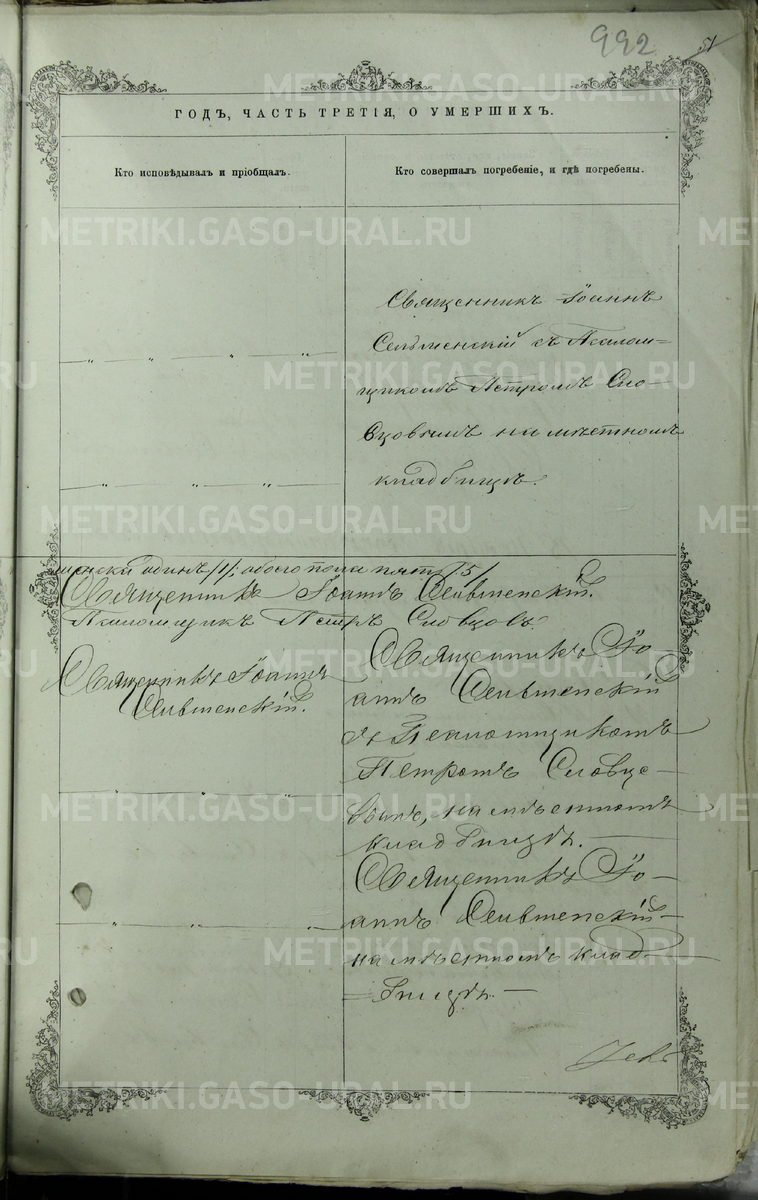 992
51
ГОДЪ, ЧАСТЬ ТРЕТІЯ, О УМЕРШИХЪ.
Кто исповѣдывалъ и пріобщалъ.
Кто совершалъ погребеніе, и гдѣ погребены.
Священникъ Іоаннъ
Сельменскій съ Псалом=
щикомъ Петромъ Сло-
вцовымъ на мѣстномъ
кладбищѣ.
женска одинъ /1/, обоего пола пять /5/
Священникъ Іоаннъ Сельменскій.
Псаломщикъ Петръ Словцовъ.
Священникъ Іоаннъ
Сельменскій.
Священникъ Іо-
аннъ Сельменскій
съ Псаломщикомъ
Петромъ Словце-
вымъ, на мѣстномъ
кладбищѣ.
Священникъ Іо-
аннъ Сельменскій
на мѣстномъ клад-
бищѣ.
METRIKI.GASO-URAL.RU